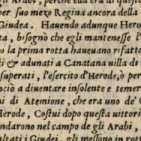 per suo mezo Regina ancora della
Giudea. Hauendo adunque Herode
ta, bisognò che egli mantenesse l'
o la prima rotta haueuano rifatto
i & adunati a Canatana uilla di
superati, l'esercito d'Herode, o per
ociò a diuentare insolente e temer
ni di Atenione, che era uno de'
Herode, Costui dopo questa uittori
andarono nel campo de gli Arabi,
ltati i Giudei, gli messono in rott